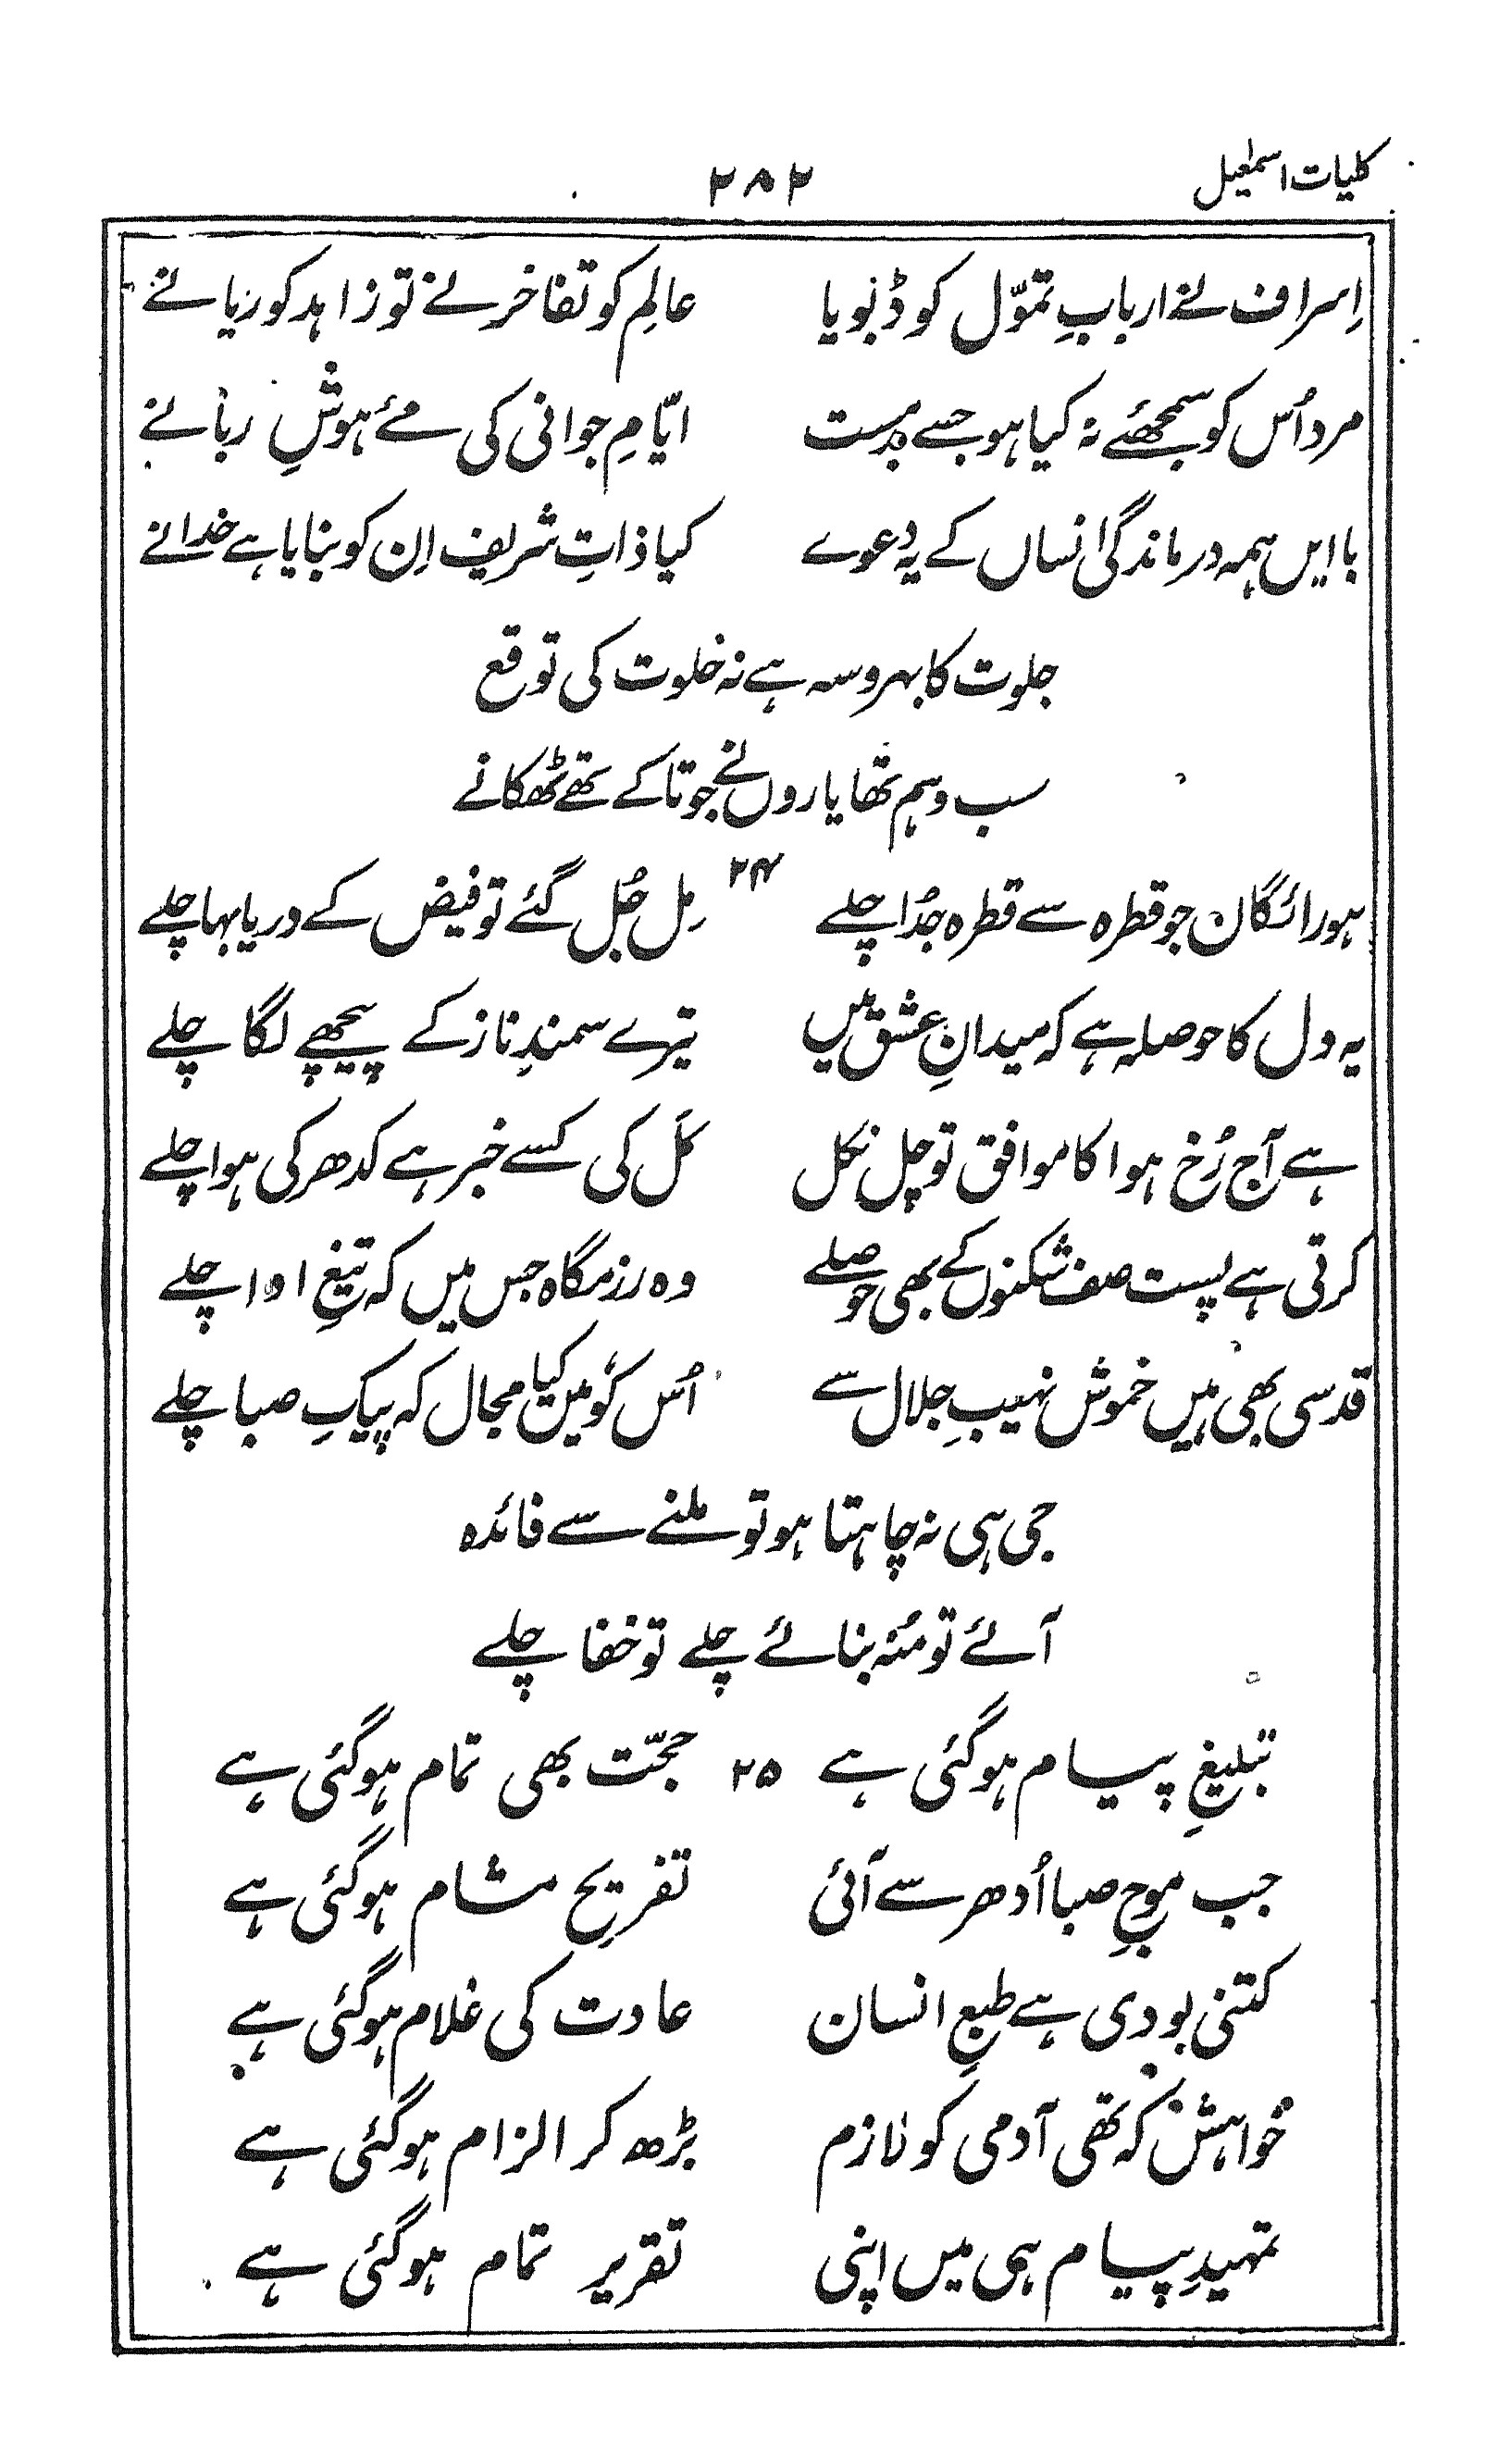 کلیات اسمٰعیل ۲۸۲
اِسراف نے اربابِ تموّل کو ڈبویا عالِم کو تفاخر نے تو زاہد کو ریا نے
مرد اُس کو سمجھئے نہ کیا ہو جسے بدمست ایّامِ جوانی کی مئے ہوشِ ربا نے
با ایں ہمہ درماندگی انساں کے یہ دعوے کیا ذاتِ شریف اِن کو بنایا ہے خدا نے
جلوت کا بہروسہ ہے نہ خلوت کی توقع
سب وہم تھا یاروں نے جو تاکے تھے ٹھکانے
ہو رائگان جو قطرہ سے قطرہ جُدا چلے ۲۴ مِل جُل گئے تو فیض کے دریا بہا چلے
یہ دل کا حوصلہ ہے کہ میدانِ عشق میں تیرے سمندِ ناز کے پیچھے لگا چلے
ہے آج رُخ ہوا کا موافق تو چل نکل کَل کی کسے خبر ہے کدھر کی ہوا چلے
کرتی ہے پست صف شکنوں کے بھی حوصلے وہ رزمگاہ جس میں کہ تیغِ ادا چلے
قدسی بھی ہیں خموش نہیبِ جلال سے اُس کُو میں کیا مجال کہ پیکِ صبا چلے
جی ہی نہ چاہتا ہو تو ملنے سے فائدہ
آئے تو مُنہ بنائے چلے تو خفا چلے
تبلیغِ پیام ہوگئی ہے ۲۵ حجّت بھی تمام ہوگئی ہے
جب موجِ صبا اُدھر سے آئی تفریحِ مشام ہوگئی ہے
کتنی بودی ہے طبعِ انسان عادت کی غلام ہوگئی ہے
خواہش کہ تھی آدمی کو لازم بڑھ کر الزام ہوگئی ہے
تمہیدِ پیام ہی میں اپنی تقریر تمام ہوگئی ہے